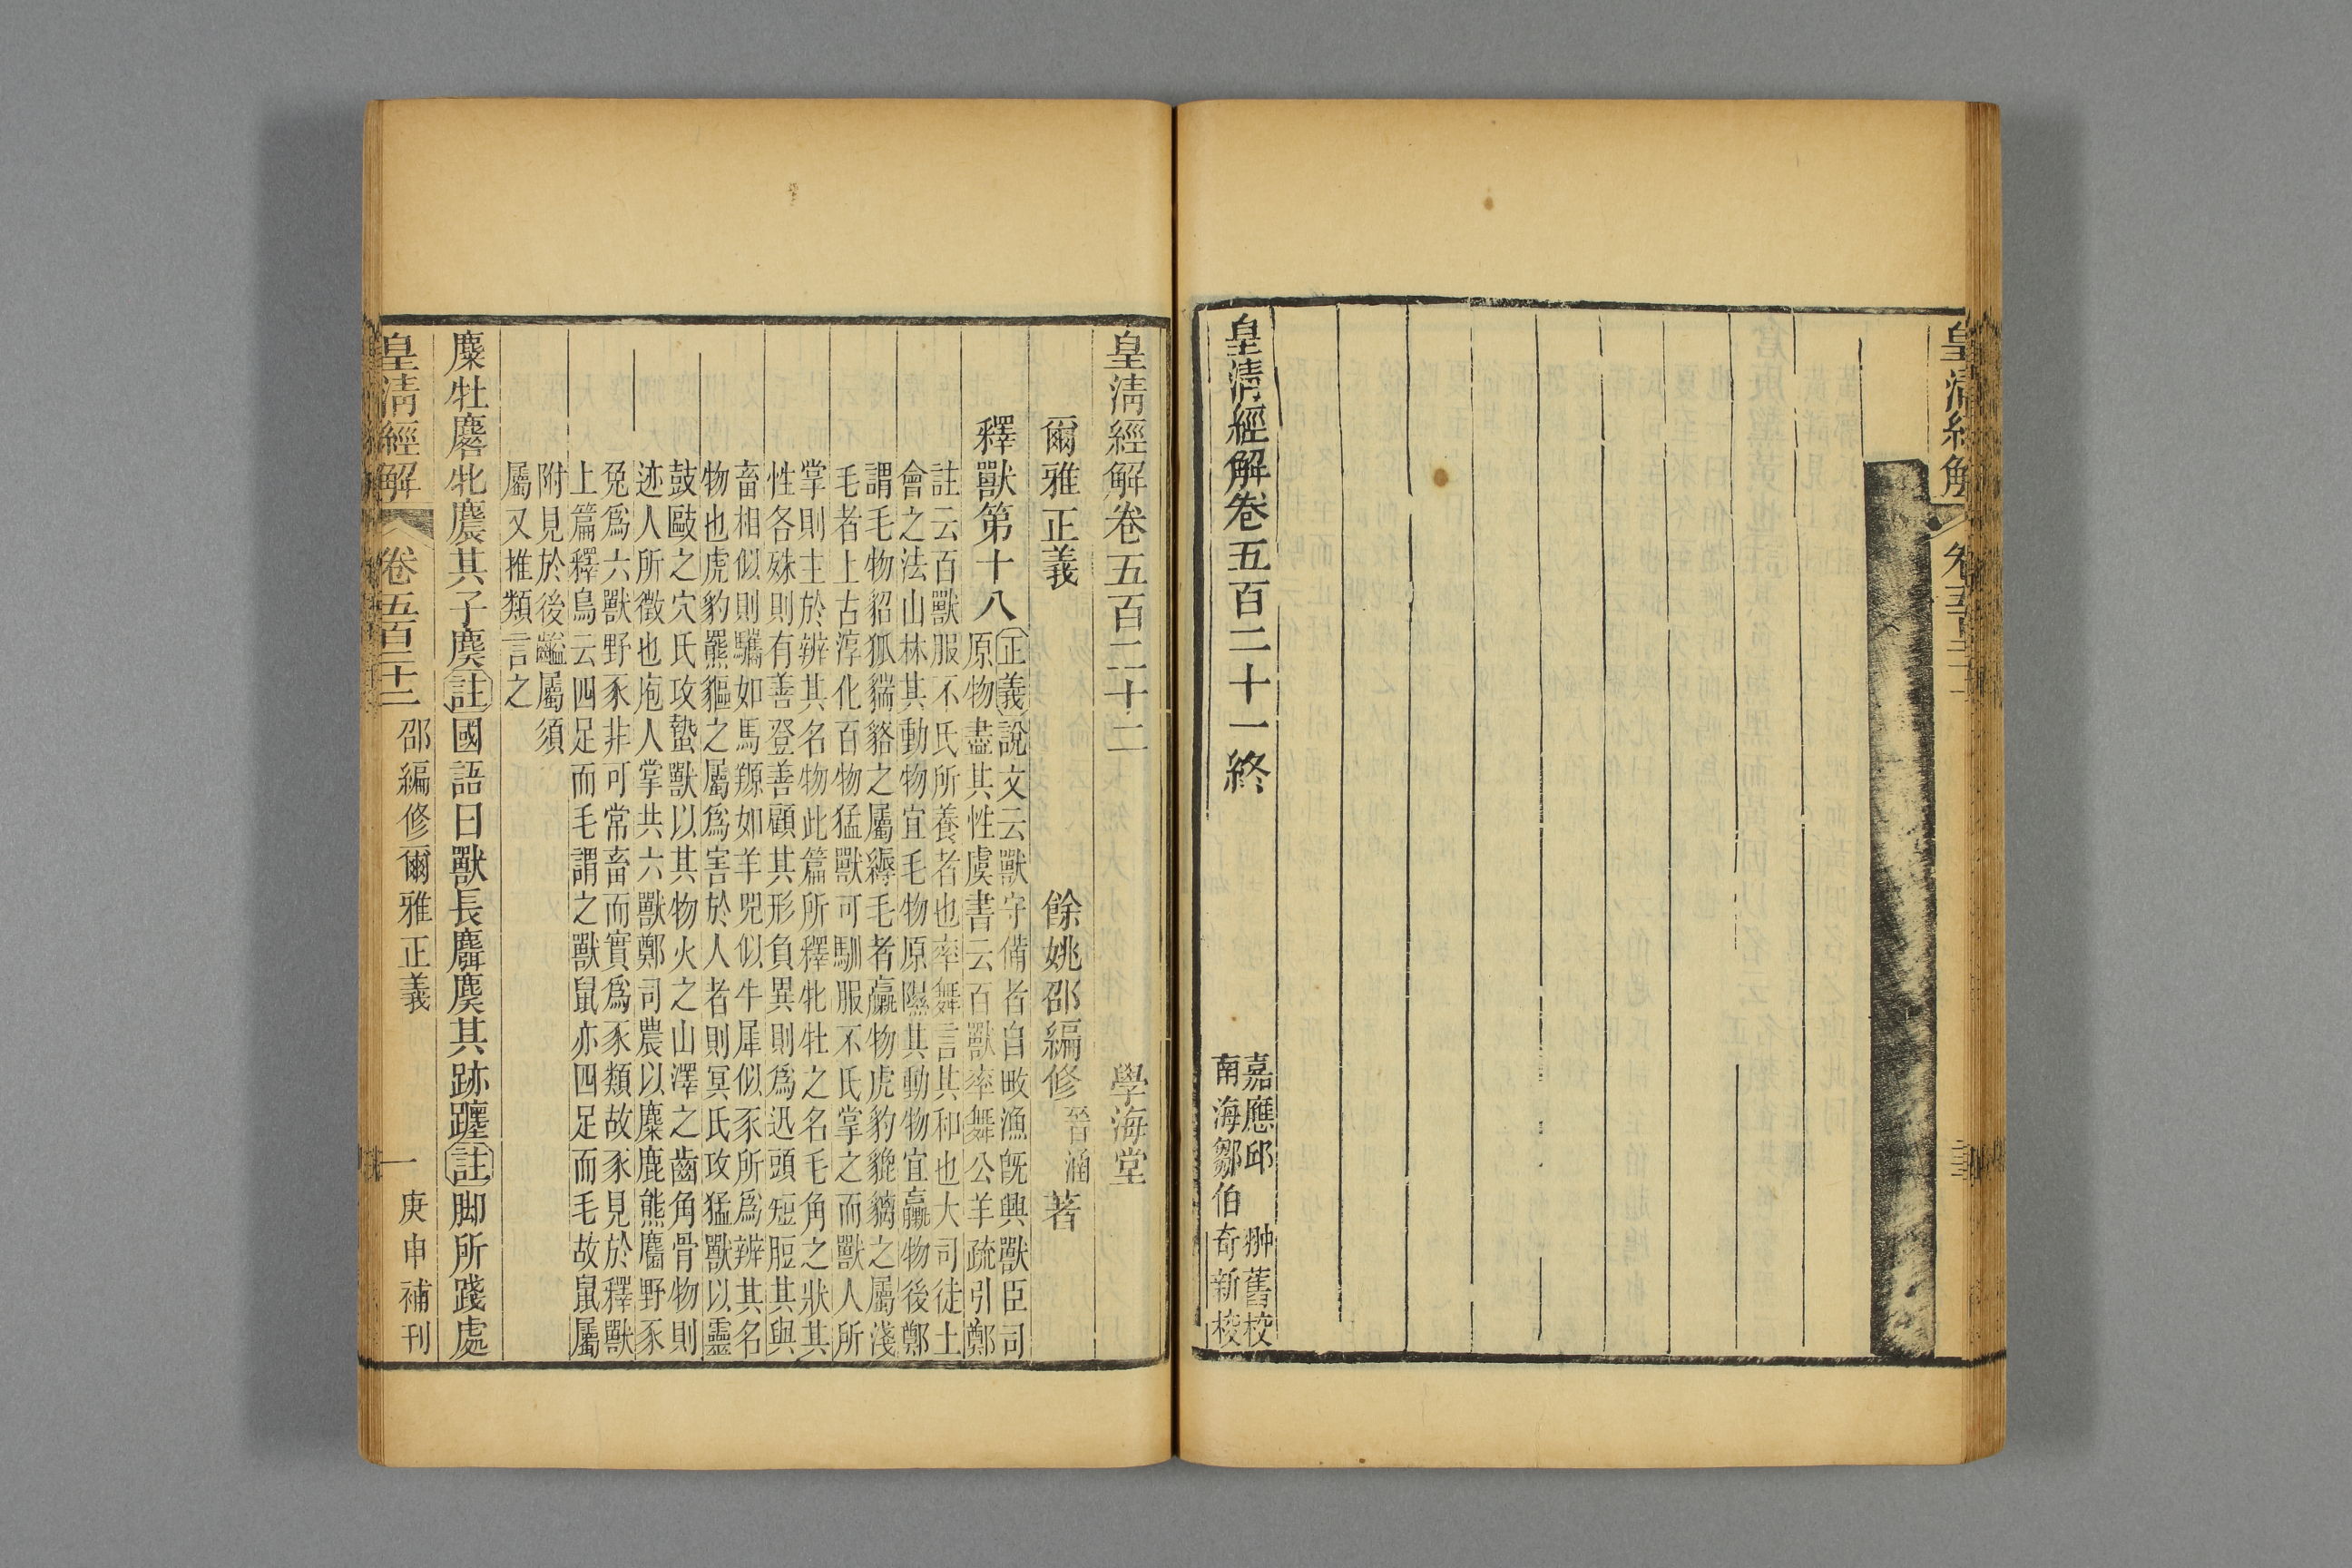 皇清經解卷五百二十一終
嘉應邱翀舊校
南海鄒伯奇新校
皇清經解卷五百二十二
學海堂
爾雅正義
餘姚邵編修晉涵著
釋獸第十八
正義說文云獸守備者自畋漁旣興獸臣司
原物盡其性虞書云百獸率舞公羊疏引鄭
註云百獸服不氏所養者也率舞言其和也大司徒土
會之法山林其動物宜毛物原隰其動物宜臝物後鄭
謂毛物貂狐貒貉之屬縟毛者臝物虎豹貔貐之屬淺
毛者上古淳化百物猛獸可馴服不氏掌之而獸人所
掌則主於辨其名物此篇所釋牝牡之名毛角之狀其
性各殊則有善登善顧其形負異則爲迅頭短脰其與
畜相似則驨如馬羱如羊兕似牛犀似豕所爲辨其名
物也虎豹羆貙之屬爲害於人者則冥氏攻猛獸以靈
鼓敺之穴氏攻蟄獸以其物火之山澤之齒角骨物則
迹人所徵也庖人掌共六獸鄭司農以麋鹿熊麕野豕
兔爲六獸野豕非可常畜而實爲豕類故豕見於釋獸
上篇釋鳥云四足而毛謂之獸鼠亦四足而毛故鼠屬
附見於後齸屬須
屬又推類言之
麋牡麔牝麎其子䴠註國語曰獸長麛䴠其跡躔註脚所踐處
皇清經解 卷五百二十二 邵編修爾雅正義 一 庚申補刊